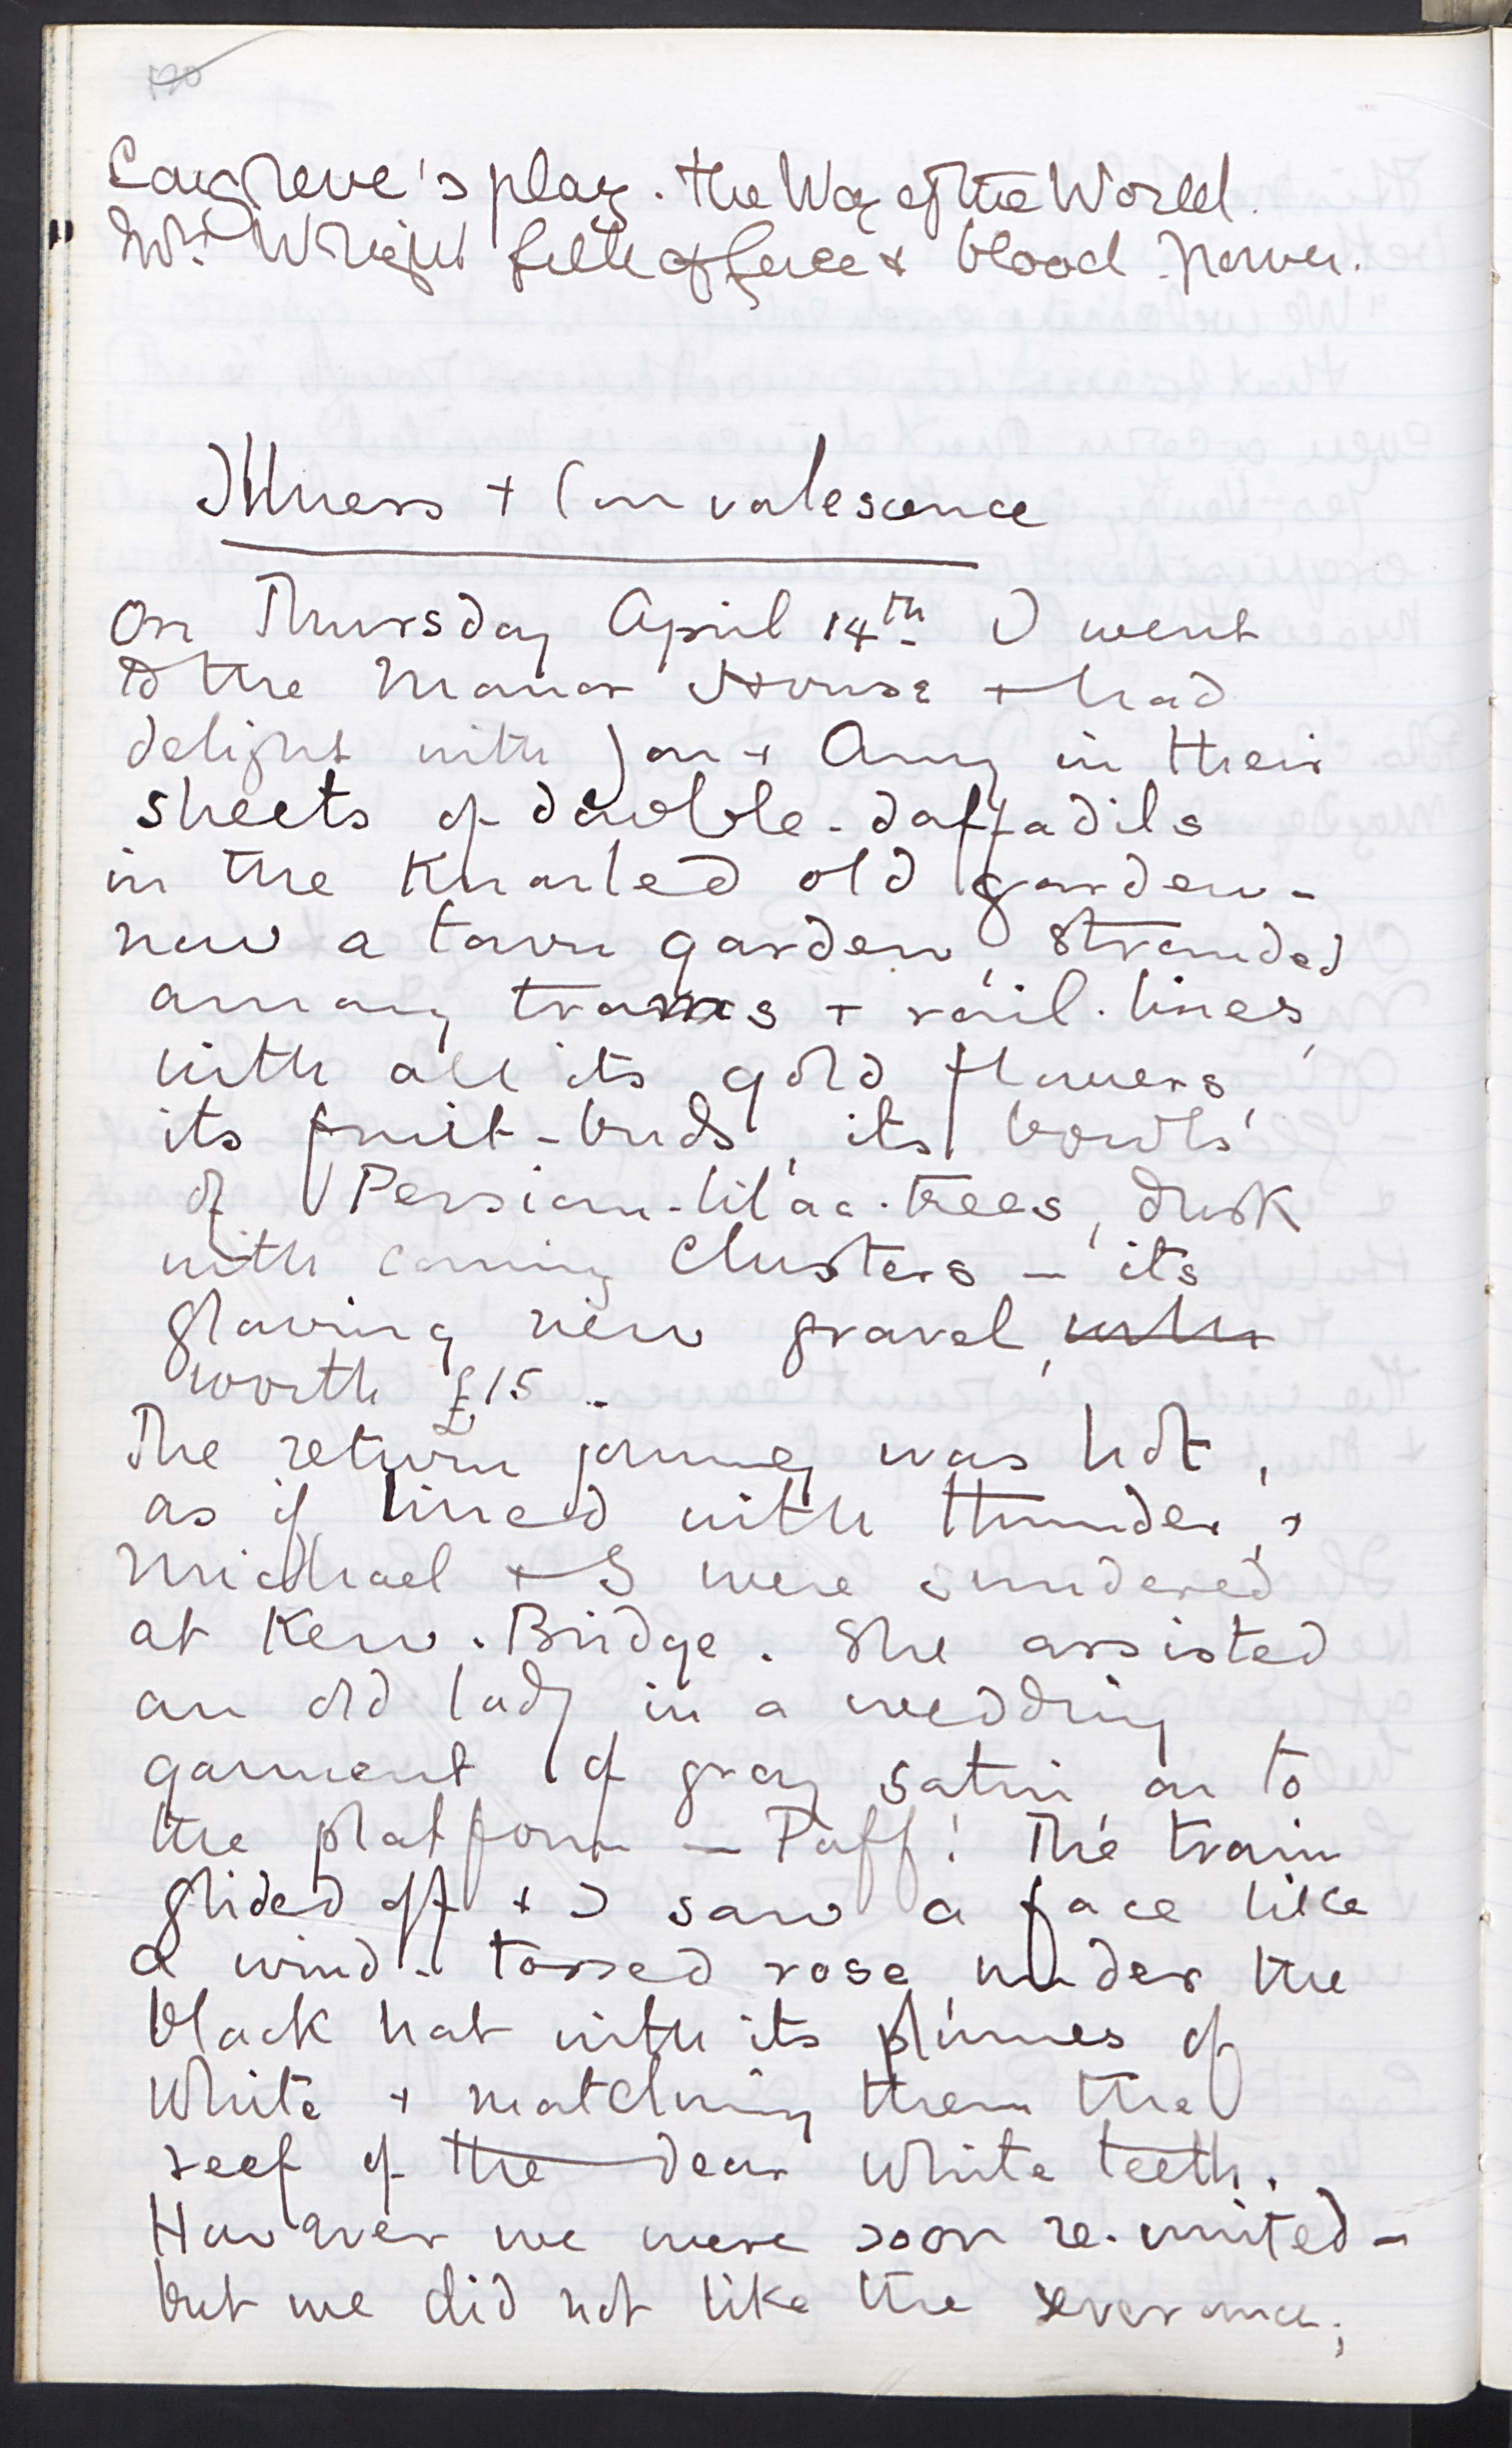 Congreve's play. The Way of the World.
Mr. Wright full of force & blood power.
Illness + Convalescence
On Thursday April 14th I went
to the Manor House + had
delight with Jan + Amy in their
sheets of double-daffadils
in the Knarled old garden -
now a town garden, stranded
among trams + rail-lines,
with all its gold flowers,
its fruit-buds, its
of Persian-lilac-trees, dusk
with coming clusters - its
glowing new gravel, with
worth £15 -
The return journey was hot,
as if lined with thunder, +
Michael + I were sundered
at Kew-Bridge. She assisted
an old lady in a wedding
garment of gray satin on to
the platform - Puff! The train
glided off + I saw a face like
a wind-tossed rose under the
black hat with its plumes of
White + matching them the
reef of the dear White teeth.
However we were soon re-united -
but we did not like the severance;